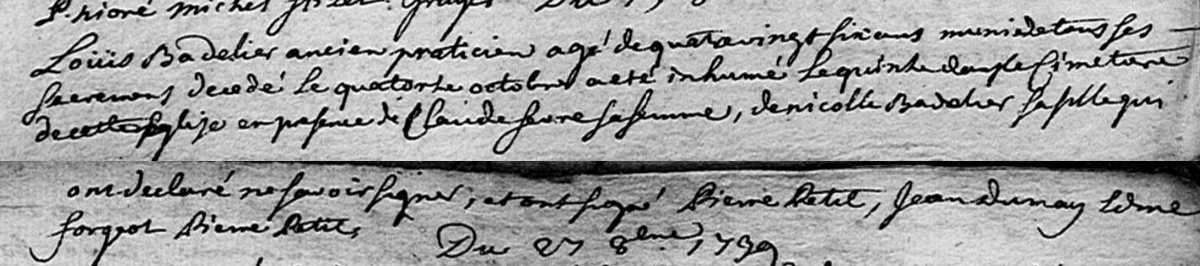 Michel
Loüis Badelier ancien praticien agé de quatrevingt six ans muni de tous ses
sacremens decedé le quatorze octobre a eté inhumé le quinze dans le Cimetiere
de cette Eglise en presence de Claude sa femme, de nicolle Badelier sa fille qui
ont declaré ne savoir signer, et ont signé Pierre Petit, Jean Dumay Edme
forgeot Pierre Petit,
Du 27 8bre 1739